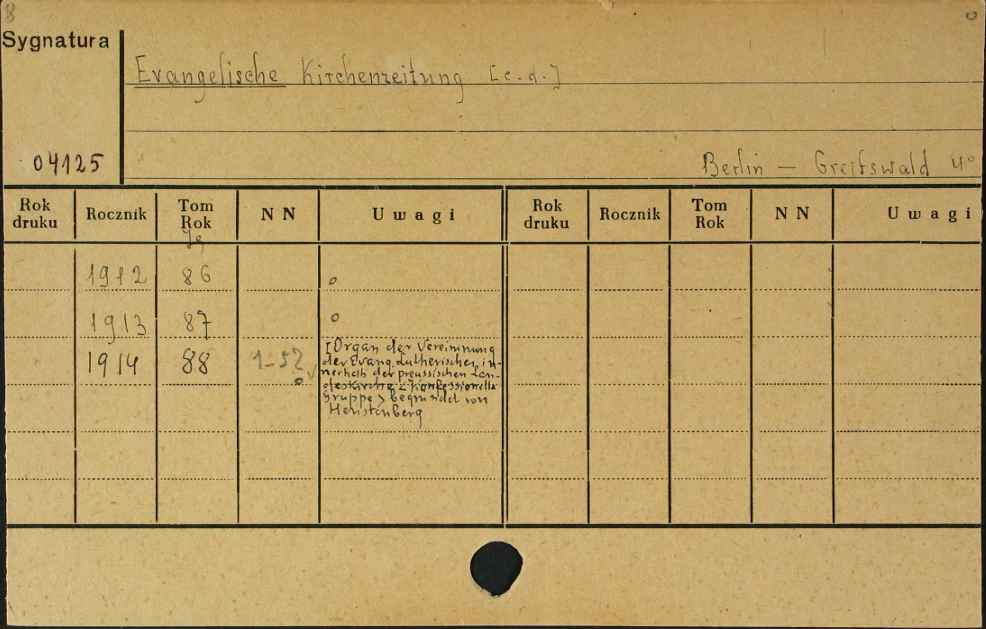 8
Sygnatura
Evangelische Kirchenzeitung [c.d.]
04125
Berlin – Greifswald 4°
Rok druku Rocznik Tom Rok NN Uwagi Rok druku Rocznik Tom Rok NN Uwagi
Jg
1912 86 o
1913 87 o
1914 88 1-52 o
[Organ der Vereinnung
der Evang. Lutherischen in-
nerhalb der preussischen Lan-
deskirche <Konfessionelle
Gruppe> begründet von
Henstenberg